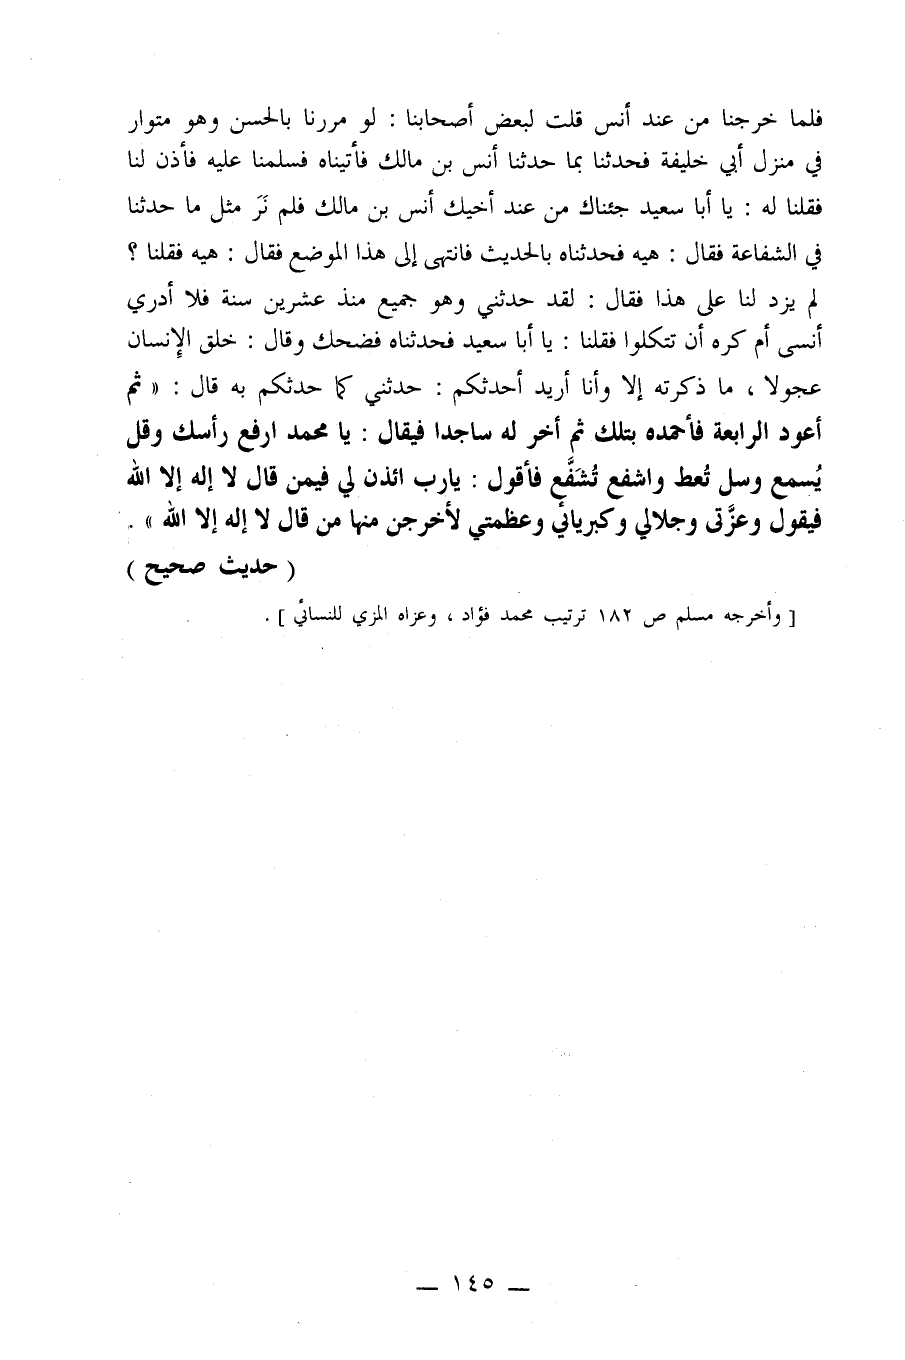 فلما خرجنا من عند أنس قلت لبعض أصحابنا : لو مررنا بالحسن وهو متوار
في منزل أبي خليفة فحدثنا بما حدثنا أنس بن مالك فأتيناه فسلمنا عليه فأذن لنا
فقلنا له : يا أبا سعيد جئناك من عند أخيك أنس بن مالك فلم نَرَ مثل ما حدثنا
في الشفاعة فقال : هيه فحدثناه بالحديث فانتهى إلى هذا الموضع فقال : هيه فقلنا ؟
لم يزد لنا على هذا فقال : لقد حدثني وهو جميع منذ عشرين سنة فلا أدري
أنسى أم كره أن تتكلوا فقلنا : يا أبا سعيد فحدثناه فضحك وقال : خلق الإنسان
عجولا ، ما ذكرته إلا وأنا أريد أحدثكم : حدثني كما حدثكم به قال : « ثم
أعود الرابعة فأحمده بتلك ثم أخر له ساجدا فيقال : يا محمد ارفع رأسك وقل
يُسمع وسل تُعط واشفع تُشَفَّع فأقول : يارب ائذن لي فيمن قال لا إله إلا الله
فيقول وعزَّتى وجلالي وكبريائي وعظمتي لأخرجن منها من قال لا إله إلا الله » .
( حديث صحيح )
[ وأخرجه مسلم ص ١٨٢ ترتيب محمد فؤاد ، وعزاه المزي للنسائي ] .
— ١٤٥ —